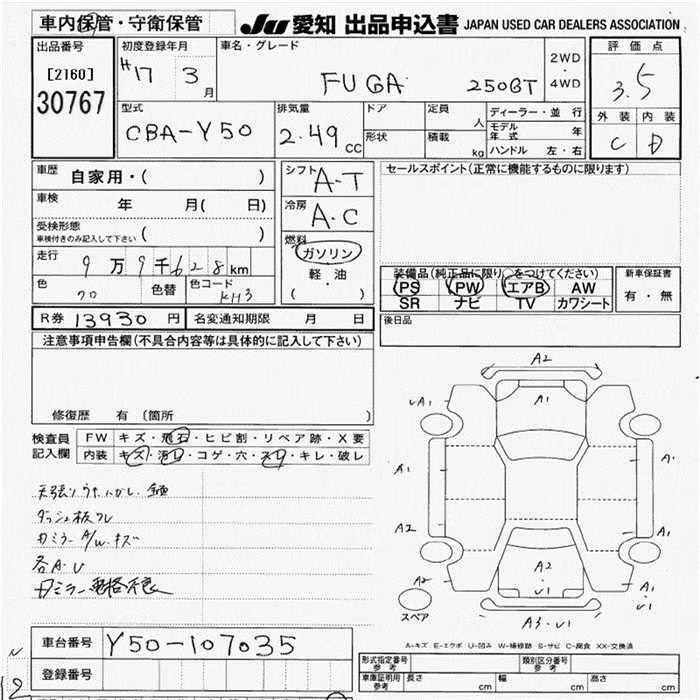 車内保管・守衛保管
JU 愛知 出品申込書 JAPAN USED CAR DEALERS ASSOCIATION
出品番号
[2160]
30767
初度登録年月
H17 3月
車名・グレード
FUGA 250GT
2WD
・
4WD
評価点
3.5
型式
CBA-Y50
排気量
2.49 cc
ドア
形状
定員 人
積載 kg
ディーラー・並行
モデル年式 年
ハンドル 左・右
外装 内装
C D
車歴
自家用・( )
車検 年 月( 日)
受検形態
車検付きのみ記入して下さい ( )
走行 9万9千628km
色 クロ
色替
色コード KH3
シフト
A-T
冷房
A.C
燃料
ガソリン
軽・油
( ・ )
セールスポイント(正常に機能するものに限ります)
装備品(純正品に限り○をつけてください)
PS PW エアB AW
SR ナビ TV カワシート
新車保証書
有・無
R券 13930 円
名変通知期限 月 日
後日品
注意事項申告欄(不具合内容等は具体的に記入して下さい)
修復歴 有 (箇所 )
検査員
記入欄
FW キズ・飛石・ヒビ割・リペア跡・X要
内装 キズ・汚レ・コゲ・穴・スレ・キレ・破レ
ダッシュ板
ミラー A/W キズ
各A・U
A2
A1
A1
A1
A1
A2
A1
A2
U1
A2
A1
U1
スペア
A3・U1
A-キズ E-エクボ U-凹み W-補修跡 S-サビ C-腐食 XX-交換済
車台番号 Y50-107035
登録番号
型式指定番号
参考
類別区分番号
参考
車庫証明用
参考
長さ cm
幅 cm
高さ cm
N
12